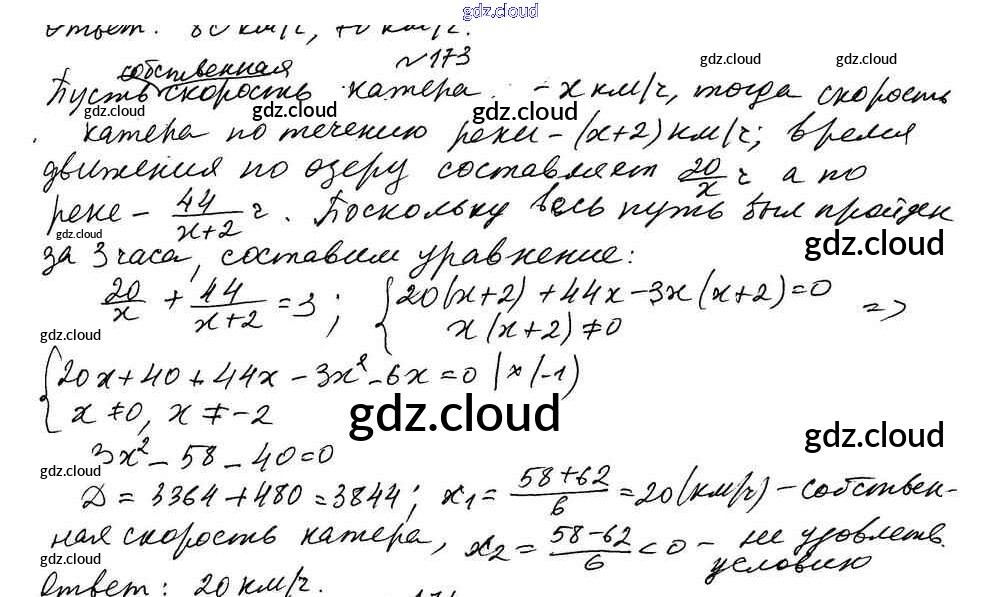 gdz.cloud
Ответ: 80 км/ч, 70 км/ч.
№173
gdz.cloud
собственная
Пусть скорость катера - x км/ч, тогда скорость
gdz.cloud gdz.cloud gdz.cloud
катера по течению реки - (x+2) км/ч; время
движения по озеру составляет 20/x ч а по
реке - 44/(x+2) ч. Поскольку весь путь был пройден
gdz.cloud gdz.cloud
за 3 часа, составим уравнение:
20/x + 44/(x+2) = 3; { 20(x+2) + 44x - 3x(x+2) = 0
x(x+2) ≠ 0 =>
gdz.cloud
{ 20x + 40 + 44x - 3x² - 6x = 0 |×(-1)
x ≠ 0, x ≠ -2
gdz.cloud gdz.cloud
3x² - 58 - 40 = 0
gdz.cloud
Д = 3364 + 480 = 3844; x₁ = (58+62)/6 = 20 (км/ч) - собствен-
ная скорость катера, x₂ = (58-62)/6 < 0 - не удовлетв.
условию
gdz.cloud gdz.cloud
Ответ: 20 км/ч.